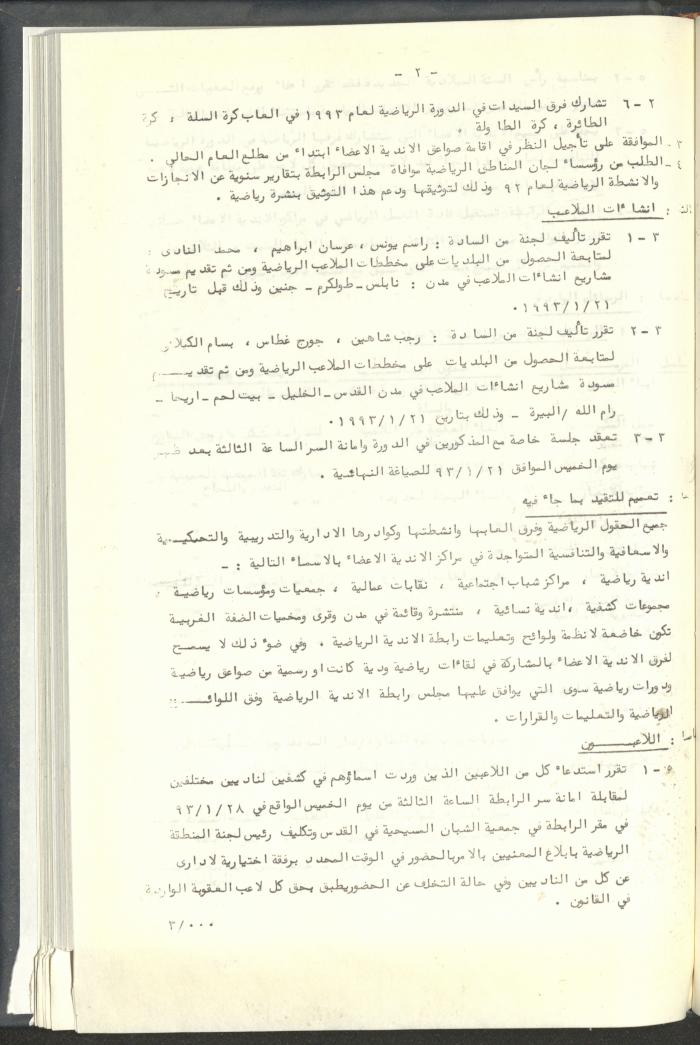 - ٢ -
٢-٦ تشارك فرق السيدات في الدورة الرياضية لعام ١٩٩٣ في العاب كرة السلة ، كرة
الطائرة ، كرة الطاولة .
٣- الموافقة على تأجيل النظر في اقامة صواعق الاندية الاعضاء ابتداء من مطلع العام الحالي .
٤- الطلب من رؤساء لجان المناطق الرياضية موافاة مجلس الرابطة بتقارير سنوية عن الانجازات
والانشطة الرياضية لعام ٩٢ وذلك لتوثيقها ودعم هذا التوثيق بنشرة رياضية .
: انشاءات الملاعب
٣-١ تقرر تأليف لجنة من السادة : راسم يونس ، عرسان ابراهيم ، محمد النادى :
لمتابعة الحصول من البلديات على مخططات الملاعب الرياضية ومن ثم تقديم مسودة
مشاريع انشاءات الملاعب في مدن : نابلس - طولكرم - جنين وذلك قبل تاريخ
١٩٩٣/١/٢١.
٣-٢ تقرر تأليف لجنة من السادة : رجب شاهين ، جورج غطاس ، بسام الكيلا
لمتابعة الحصول من البلديات على مخططات الملاعب الرياضية ومن ثم تقديـــم
مسودة مشاريع انشاءات الملاعب في مدن القدس - الخليل - بيت لحم - اريحا -
رام الله /البيرة - وذلك بتاريخ ١٩٩٣/١/٢١.
٣-٣ تعقد جلسة خاصة مع المذكورين في الدورة وامانة السر الساعة الثالثة بعد ظهر
يوم الخميس الموافق ٩٣/١/٢١ للصياغة النهائية .
: تعميم للتقيد بما جاء فيه
جميع الحقول الرياضية وفرق العابها وانشطتها وكوادرها الادارية والتدريبية والتحكيـــمية
والاسعافية والتنافسية المتواجدة في مراكز الاندية الاعضاء بالاسماء التالية : -
اندية رياضية ، مراكز شباب اجتماعية ، نقابات عمالية ، جمعيات ومؤسسات رياضيـة ،
مجموعات كشفية ، اندية نسائية ، منتشرة وقائمة في مدن وقرى ومخميات الضفة الغربيـة
تكون خاضعة لانظمة ولوائح وتعليمات رابطة الاندية الرياضية . وفي ضوء ذلك لا يسمـح
لفرق الاندية الاعضاء بالمشاركة في لقاءات رياضية ودية كانت او رسمية من صواعق رياضيـة
ودورات رياضية سوى التي يوافق عليها مجلس رابطة الاندية الرياضية وفق اللوائـــح
الرياضية والتعليمات والقرارات .
: اللاعبـــون
٥-١ تقرر استدعاء كل من اللاعبين الذين وردت اسماؤهم في كشفين لناديين مختلفين
لمقابلة امانة سر الرابطة الساعة الثالثة من يوم الخميس الواقع في ٩٣/١/٢٨
في مقر الرابطة في جمعية الشبان المسيحية في القدس وتكليف رئيس لجنة المنطقة
الرياضية بابلاغ المعنيين بالامر بالحضور في الوقت المحدد برفقة اختيارية لادارى
عن كل من الناديين وفي حالة التخلف عن الحضور يطبق بحق كل لاعب العقوبة الواردة
في القانون .
٣/...